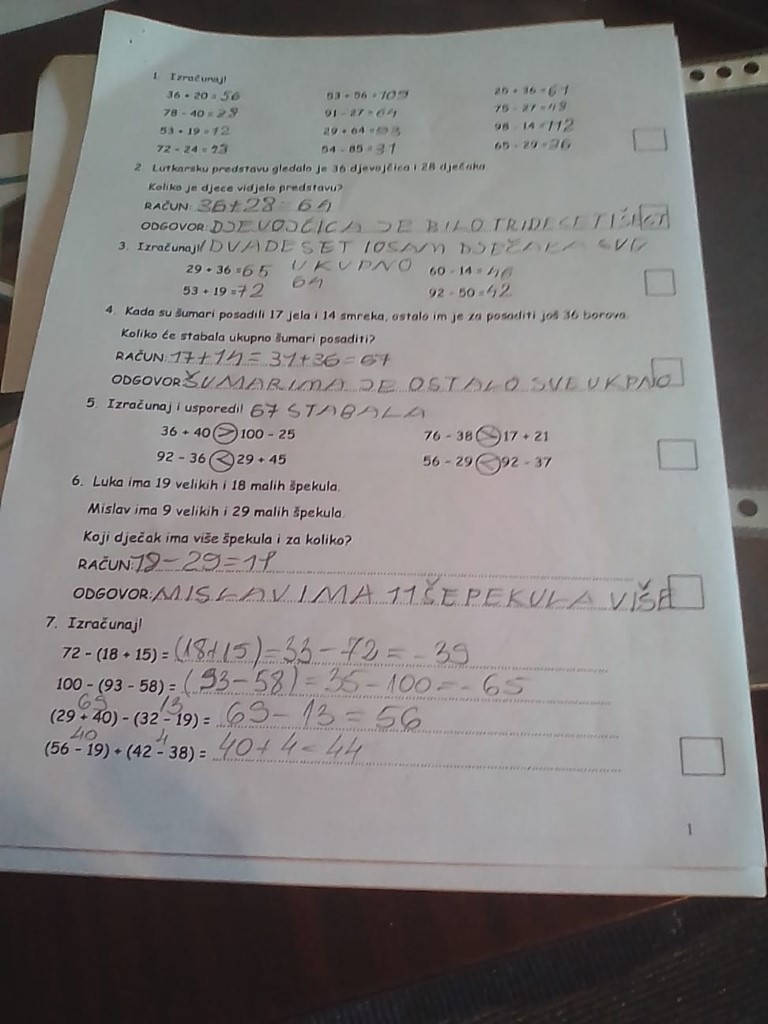 1. Izračunaj!
36 + 20 = 56 53 + 56 = 109 25 + 36 = 61
78 - 40 = 28 91 - 27 = 64 75 - 27 = 48
53 + 19 = 12 29 + 64 = 93 98 - 14 = 112
72 - 24 = 23 54 - 85 = 31 65 - 29 = 36
2. Lutkarsku predstavu gledalo je 36 djevojčica i 28 dječaka.
Koliko je djece vidjelo predstavu?
RAČUN: 36+28=64
ODGOVOR: DJEVOJČICA JE BILO TRIDESET I ŠEST
3. Izračunaj! DVADESET I OSAM DJEČAKA SVU
29 + 36 = 65 UKUPNO 60 - 14 = 46
53 + 19 = 72 64 92 - 50 = 42
4. Kada su šumari posadili 17 jela i 14 smreka, ostalo im je za posaditi još 36 borova.
Koliko će stabala ukupno šumari posaditi?
RAČUN: 17+14=31+36=67
ODGOVOR ŠUMARIMA JE OSTALO SVEUKPNO
5. Izračunaj i usporedi! 67 STABALA
36 + 40 > 100 - 25 76 - 38 > 17 + 21
92 - 36 < 29 + 45 56 - 29 < 92 - 37
6. Luka ima 19 velikih i 18 malih špekula.
Mislav ima 9 velikih i 29 malih špekula.
Koji dječak ima više špekula i za koliko?
RAČUN: 18-29=11
ODGOVOR: MISLAV IMA 11 ŠEPEKULA VIŠE
7. Izračunaj!
72 - (18 + 15) = (18+15)=33-72=-39
100 - (93 - 58) = (93-58)=35-100=-65
69 13
(29 + 40) - (32 - 19) = 69-13=56
40 4
(56 - 19) + (42 - 38) = 40+4=44
1